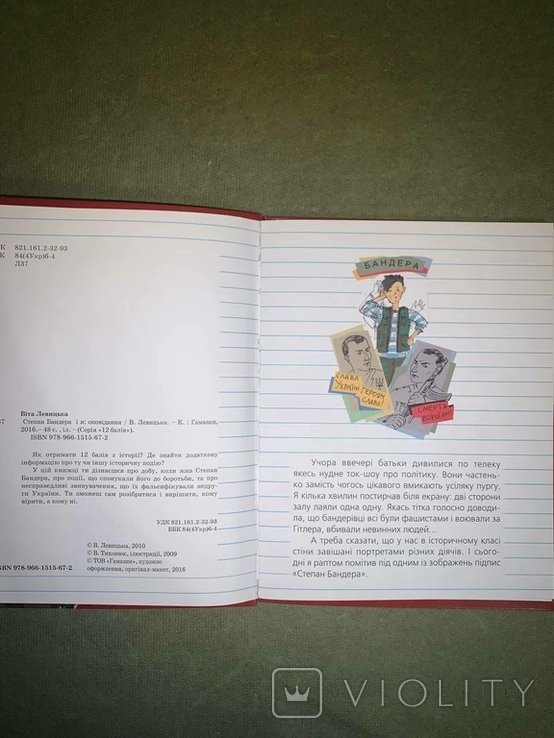 К 821.161.2-32-93
К 84(4Укр)6-4
Л37
Віта Левицька
Степан Бандера і я: оповідання / В. Левицька. – К. : Гамазин,
2016.– 48 с. , іл. – (Серія «12 балів»).
ISBN 978-966-1515-67-2
Як отримати 12 балів з історії? Де знайти додаткову
інформацію про ту чи іншу історичну подію?
У цій книжці ти дізнаєшся про добу, коли жив Степан
Бандера, про події, що спонукали його до боротьби, та про
несправедливі звинувачення, що їх фальсифікували недру-
ги України. Ти зможеш сам розібратися і вирішити, кому
вірити, а кому ні.
УДК 821.161.2-32-93
ББК 84(4Укр)6-4
© В. Левицька, 2010
© В. Тихонюк, ілюстрації, 2009
© ТОВ «Гамазин», художнє
оформлення, оригінал-макет, 2016
ISBN 978-966-1515-67-2
БАНДЕРА
СЛАВА
УКРАЇНІ
ГЕРОЯМ
СЛАВА!
СМЕРТЬ
ВОРОГАМ!
Учора ввечері батьки дивилися по телеку
якесь нудне ток-шоу про політику. Вони частень-
ко замість чогось цікавого вмикають усіляку пургу.
Я кілька хвилин постирчав біля екрану: дві сторони
залу лаяли одна одну. Якась тітка голосно доводи-
ла, що бандерівці всі були фашистами і воювали за
Гітлера, вбивали невинних людей...
А треба сказати, що у нас в історичному класі
стіни завішані портретами різних діячів. І сього-
дні я раптом помітив під одним із зображень підпис
«Степан Бандера».
VIOLITY